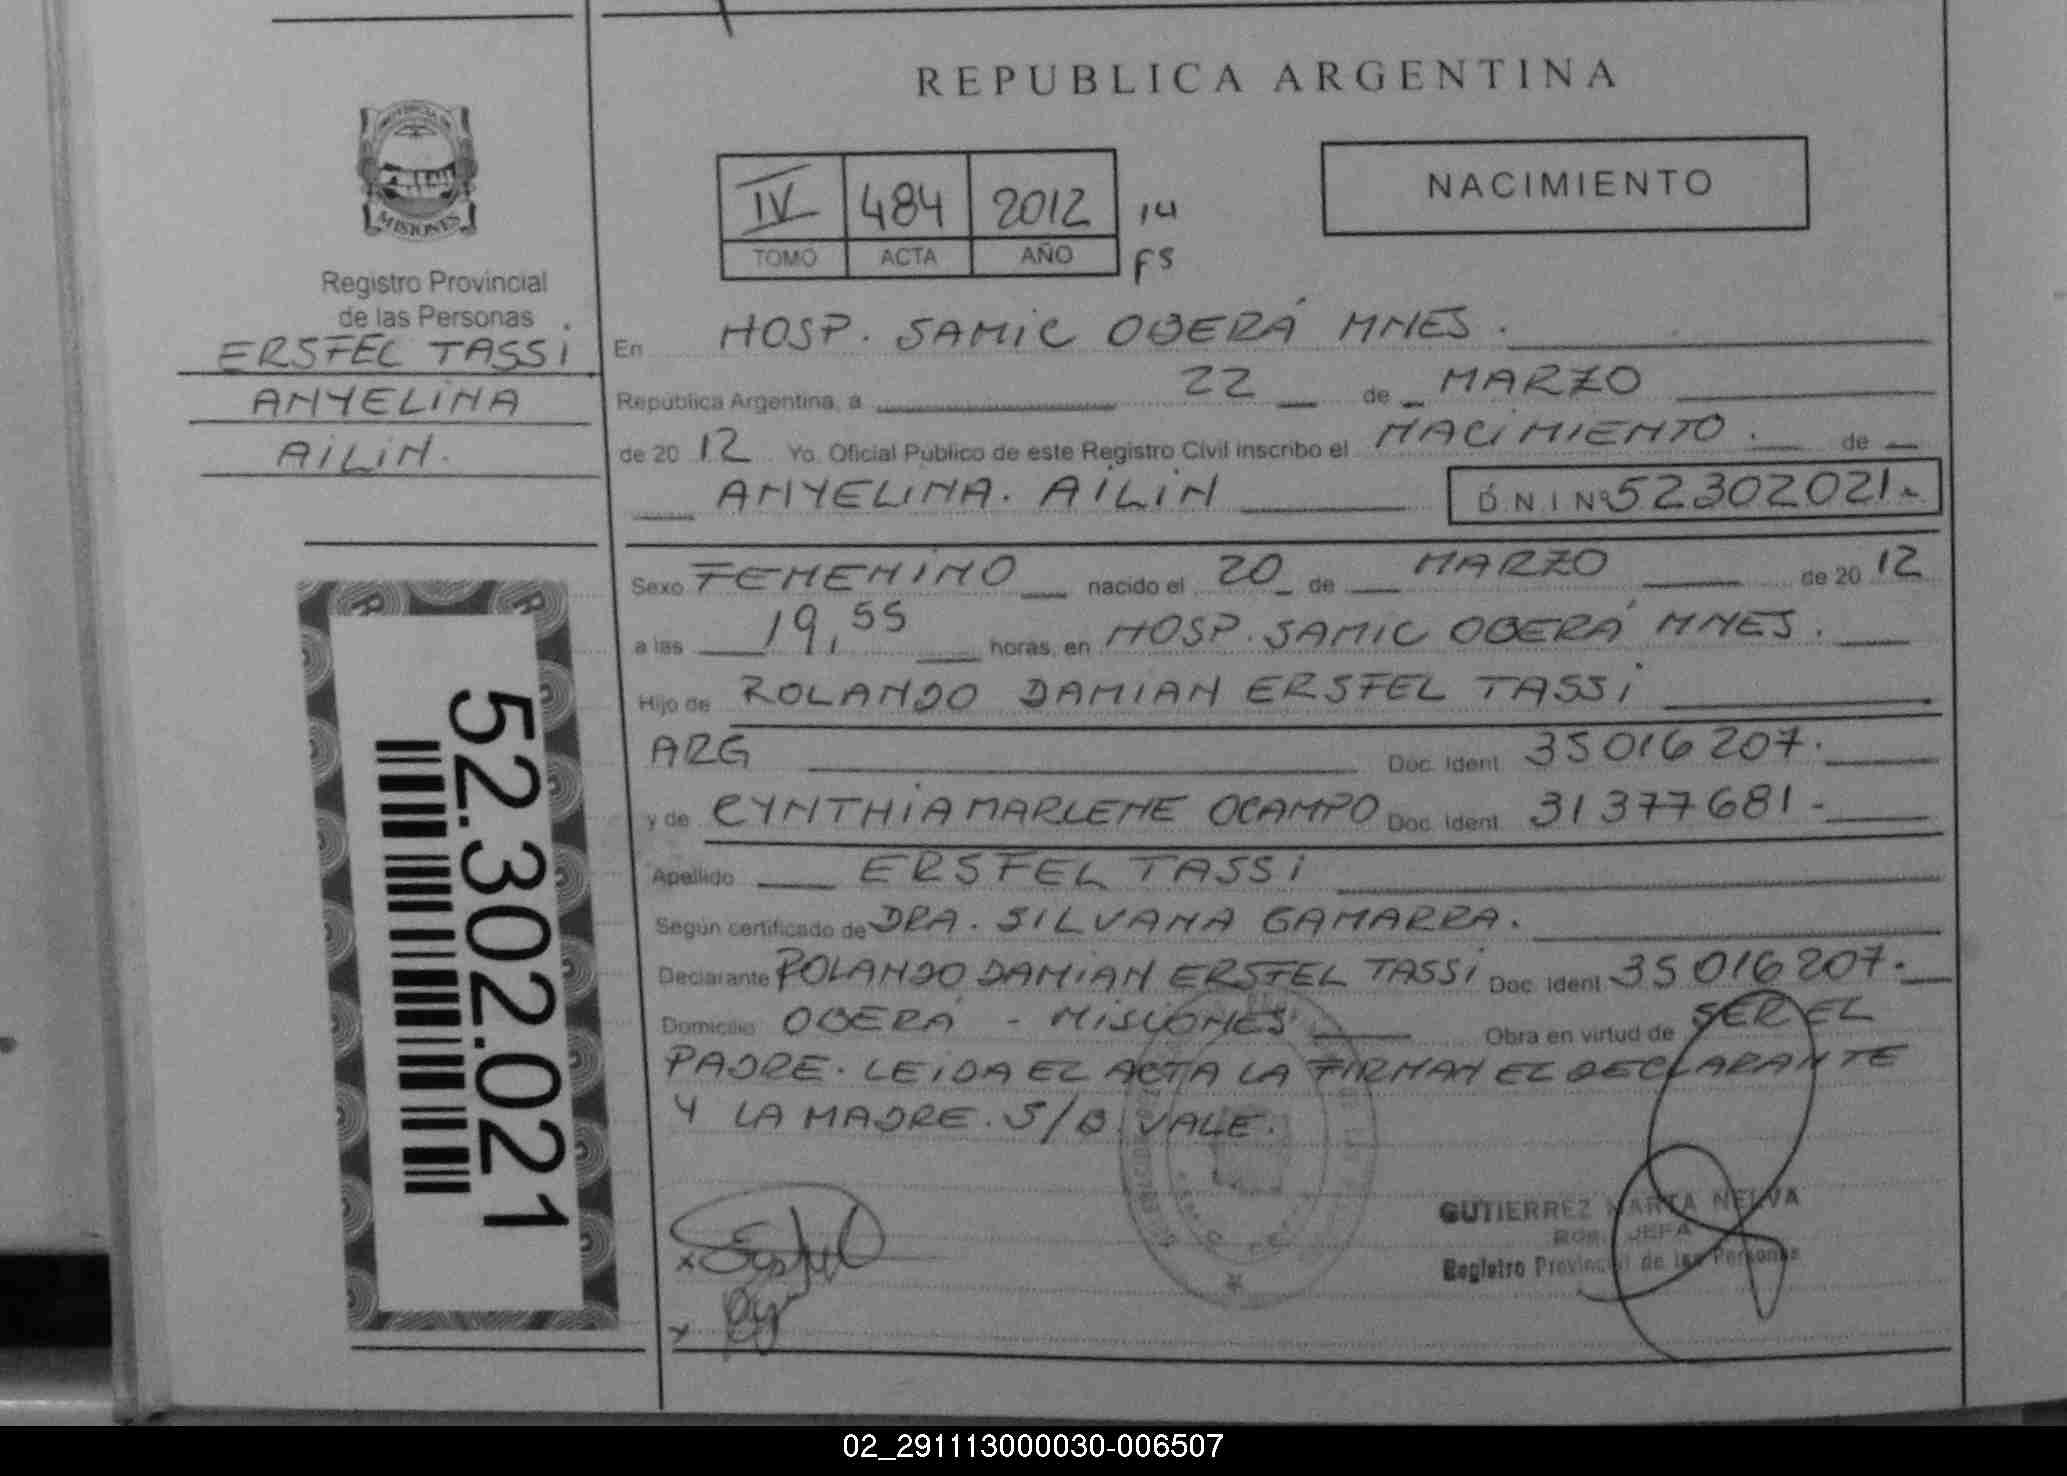 REPUBLICA ARGENTINA
NACIMIENTO
IV 484 2012 14
TOMO ACTA AÑO FS
MISIONES
Registro Provincial
de las Personas
ERSFEL TASSI
ANYELINA
AILIN.
En HOSP. SAMIC OBERÁ MNES.
República Argentina, a 22 de MARZO
de 20 12 Yo. Oficial Público de este Registro Civil inscribo el NACIMIENTO. de
ANYELINA. AILIN D N I Nº 52302021.-
Sexo FEMENINO nacido el 20 de MARZO de 20 12
a las 19,55 horas, en HOSP. SAMIC OBERÁ MNES.
Hijo de ROLANDO DAMIAN ERSFEL TASSI
ARG Doc. Ident. 35016207.
y de CYNTHIA MARLENE OCAMPO Doc. Ident. 31377681-
Apellido ERSFEL TASSI
Según certificado de DRA. SILVANA GAMARRA.
Declarante ROLANDO DAMIAN ERSFEL TASSI Doc. Ident. 35016207.
Domicilio OBERÁ - MISIONES Obra en virtud de SER EL
PADRE. LEIDA EL ACTA LA FIRMAN EL DECLARANTE
Y LA MADRE. S/B. VALE.
52.302.021
GUTIERREZ MARTA NELVA
JEFA
Registro Provincial de las Personas
02_291113000030-006507